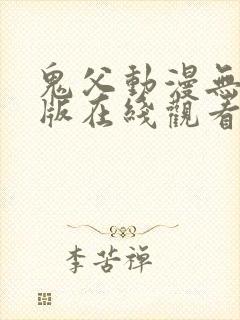 鬼父動漫無
版在綫觀看
李苦禅